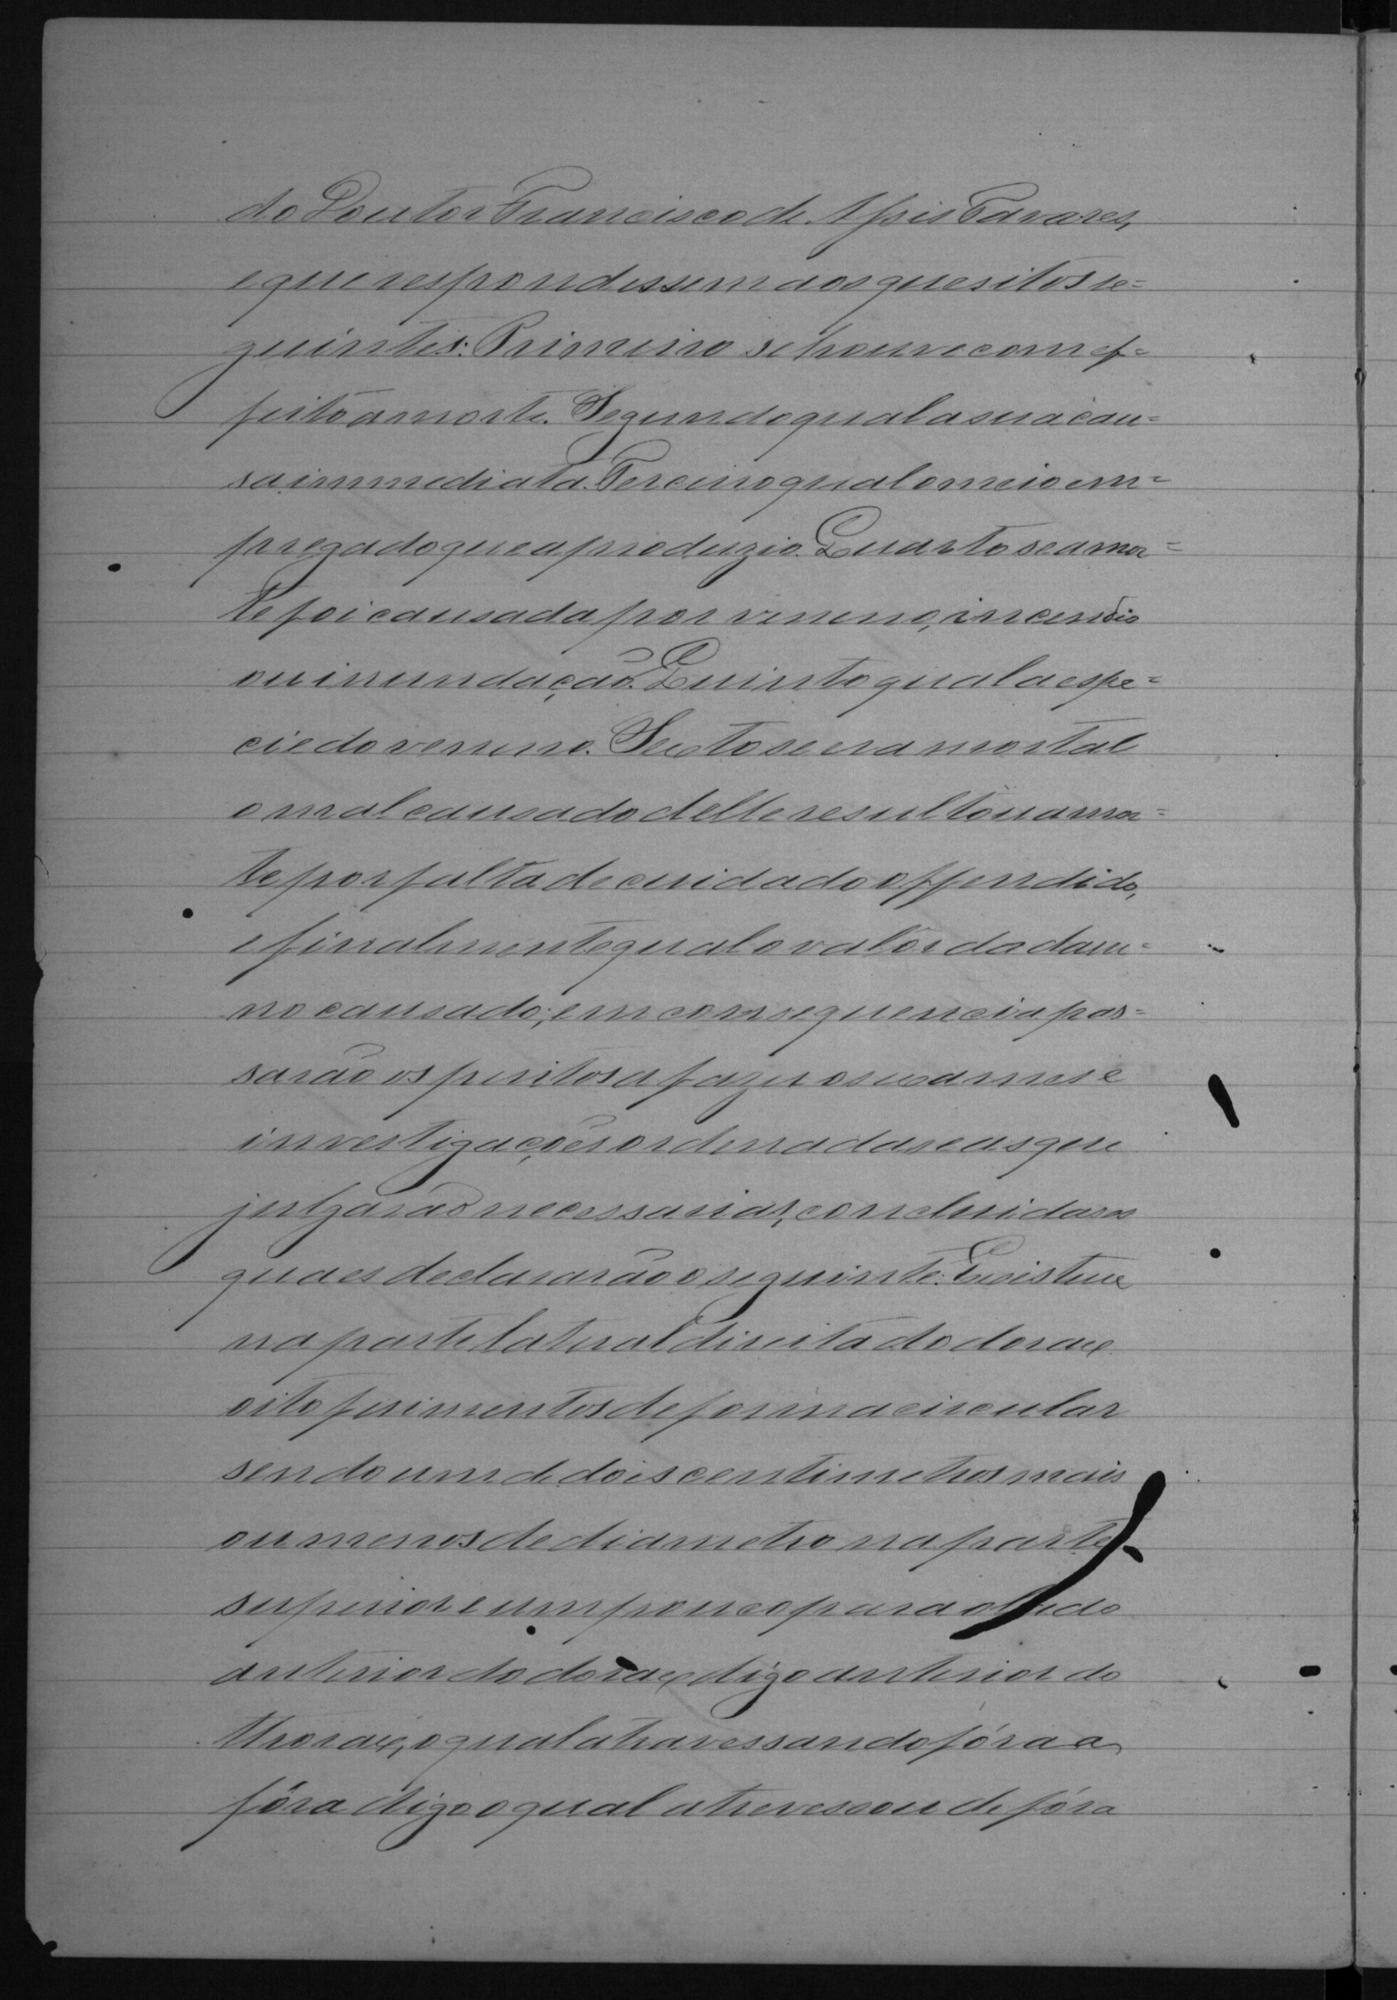 do Doutor Francisco de Assis Tavares,
e que respondessem aos quesitos se=
guintes: Primeiro se houve com ef=
feito a morte. Segundo qual a sua cau=
sa immediata. Terceiro qual o meio em=
pregado que a produzio. Quarto se a mor=
te foi causada por veneno, incendio
ou inundação. Quinto qual a espe=
cie do veneno. Sexto se era mortal
o mal causado delle resultou a mor=
te por falta de cuidado offendido,
e finalmente qual o valor do dam=
no causado; em consequencia pas=
sarão os peritos a fazer os exames e
investigações ordenadas e as que
julgarão necessarias, concluidas as
quaes declararão o seguinte: Existem
na parte lateral direita do dorax
oito ferimentos de forma circular
sendo um de dois centimetros mais
ou menos de diametro na parte
superior e um pouco para o lado
anterior do dorax, digo anterior do
thorax, o qual atravessando fóra a
fóra digo o qual atravessou de fóra